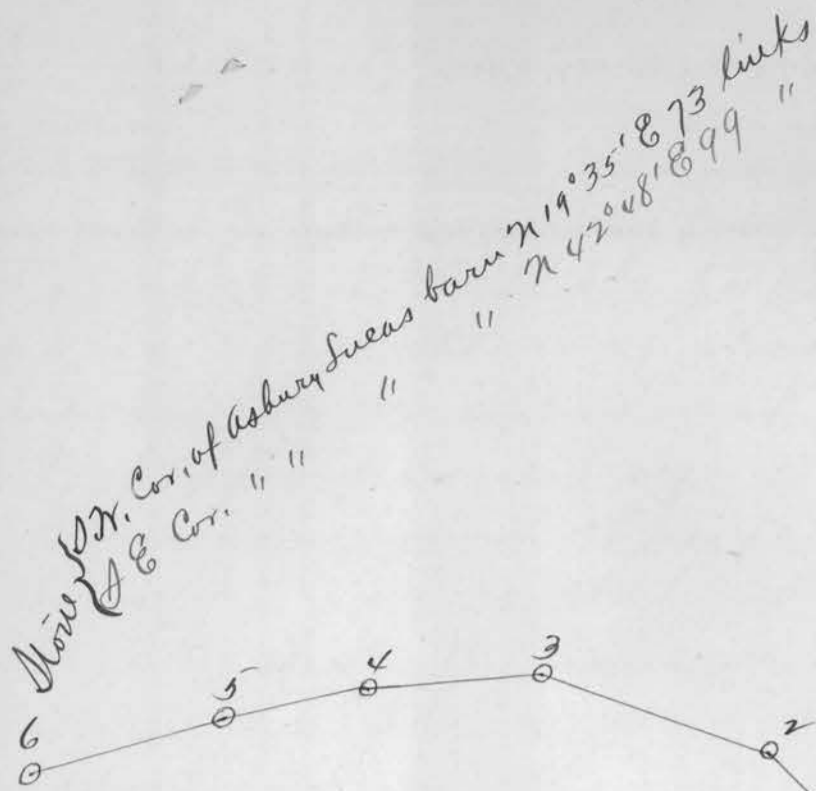 Stone { S.W. Cor. of Asbury Lucas barn N 19° 35' E 73 links
S E Cor. " " " " N 42° 48' E 99 "
6 5 4 3 2